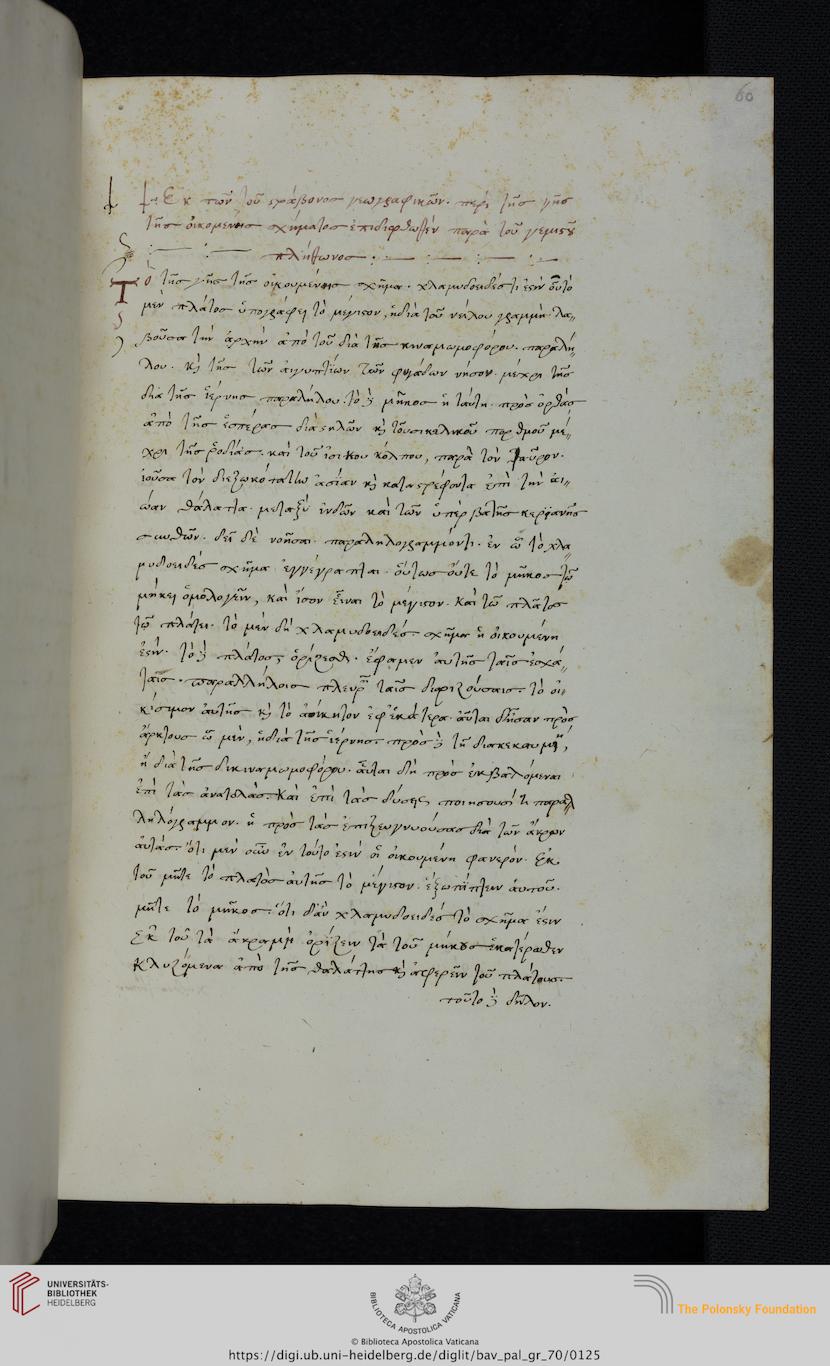 60
Ἐκ τῶν τοῦ στράβωνος γεωγραφικῶν. περὶ τῆς γῆς
τῆς οἰκομενης σχήματος ἐπιδιορθωθὲν παρὰ τοῦ γεμιστοῦ
πλήθωνος
Τὸ τῆς γῆς τῆς οἰκουμένης σχῆμα. χλαμυδοειδές τί ἐστὶν οὗ τὸ
μὲν πλάτος ὑπογράφει τὸ μέγιστον, ἡ διὰ τοῦ νείλου γραμμὴ λα=
βοῦσα τὴν ἀρχὴν ἀπὸ τοῦ διὰ τῆς κιναμωμοφόρου. παραλή=
λου. καὶ τῆς τῶν αἰγυπτίων τῶν φυγάδων νήσου. μέχρι τῆς
διὰ τῆς ἰέρνης παραλήλου. τὸ δὲ μῆκος ἡ ταύτη. πρὸς ὀρθὰς
ἀπὸ τῆς ἑσπέρας διὰ στηλῶν καὶ τοῦ σικελικοῦ πορθμοῦ μέ=
χρι τῆς ῥοδίας. καὶ τοῦ ἰσικου κόλπου, παρὰ τὸν ταῦρον.
ἰοῦσα τὸν διεζωκότα τὴν ἀσίαν καὶ καταστρέφοντα ἐπὶ τὴν ἀι=
ώαν θάλατταν. μεταξὺ ἰνδῶν καὶ τῶν ὑπὲρ βατῆς κερφανῆς
σκυθῶν. δεῖ δὲ νοῆσαι. παραληλογραμμόν τι. ἐν ᾧ τὸ χλα=
μυδοειδές σχῆμα ἐγγέγραπται. οὕτως ὥστε τὸ μῆκος τῷ
μήκει ὁμολογεῖν, καὶ ἴσον εἶναι τὸ μέγιστον. καὶ τῷ πλάτος
τῷ πλάτει. τὸ μὲν δὴ χλαμυδοειδές σχῆμα ἡ οἰκουμένη
ἐστὶν. τὸ δὲ πλάτος ὁρίζεσθαι. ἔφαμεν αὐτῆς ταῖς ἐσχά=
ταις. παραλλήλοις πλευραῖς ταῖς διοριζούσαις. τὸ οἰ=
κίσιμον αὐτῆς καὶ τὸ ἀοίκητον ἐφ' ἑκάτερα. αὗται δὴ ἦσαν πρὸς
ἄρκτους ὦ μὲν, ἡ διὰ τῆς ἰέρνης. πρὸς δὲ τῇ διακεκαυμένῃ,
ἡ διὰ τῆς δικιναμωμοφόρου. αὗται δὴ πρὸς ἐκβαλόμεναι
ἐπὶ τὰς ἀνατολὰς. καὶ ἐπὶ τὰς δύσεις ποιήσουσί τι παραλ
ληλόγραμμον. ἢ πρὸς τὰς ἐπιζευγνυούσας διὰ τῶν ἄκρων
αὐτάς. ὅτι μὲν οὖν ἐν τούτῳ ἐστὶν ἡ οἰκουμένη φανερόν. ἐκ
τοῦ μήτε τὸ πλατὸς αὐτῆς τὸ μέγιστον. ἔξω πίπτειν αὐτοῦ.
μήτε τὸ μῆκος. ὅτι δ' ἂν χλαμυδοειδές τὸ σχῆμα ἐστιν
ἐκ τοῦ τὰ ἄκρα μὴ ὁρίζειν τὰ τοῦ μήκους ἑκατέρωθεν
κλυζόμενα ἀπὸ τῆς θαλάττης καὶ ἀφερεῖν τοῦ πλάτους.
τοῦτο δὲ δῆλον.
UNIVERSITÄTS-
BIBLIOTHEK
HEIDELBERG
BIBLIOTECA APOSTOLICA VATICANA
The Polonsky Foundation
© Biblioteca Apostolica Vaticana
https://digi.ub.uni-heidelberg.de/diglit/bav_pal_gr_70/0125